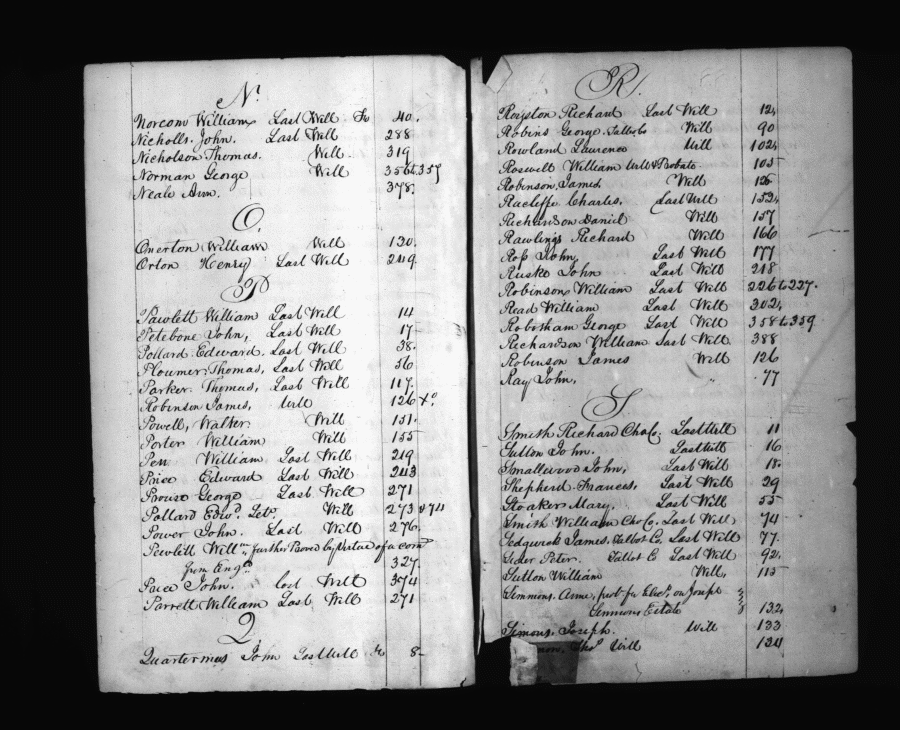 N.
Norcom William Last Will fo 40.
Nicholls John. Last Will 288
Nicholson Thomas. Will. 319
Norman George Will 356 to 357
Neale Ann. 378.
O.
Omerton William Will 120.
Orton Henry Last Will 249
P
Pawlett William Last Will 14
Petebone John, Last Will 17
Pollard Edward. Last Will 38.
Ploumer Thomas, Last Will 56
Parker Thomas, Last Will 117.
Robinson James, Will 126
Powell, Walter Will 151.
Porter William Will 155
Pew William Last Will 219
Price Edward Last Will 243
Prouse George Last Will 271
Pollard Edwd. Will 273 & 74
Power John. Last Will 276.
Pewlitt Willm. further Proved by virtue of a comn
from Engd. 327.
Price John. last Will 374
Parrett William Last Will 271
Q
Quartermus John Last Will fo 8
R.
Royston Richard Last Will 12
Robins George Talb Co Will 90
Rowland Laurence Will 102
Roswell William Will & Probate 105
Robinson, James Will 126
Racliffe Charles, Last Will 152
Richardson Daniel Will 157
Rawlings Richard Will 166
Ross John, Last Will 177
Ruske John Last Will 218
Robinson William Last Will 226 to 227.
Read William Last Will 302.
Robotham George Last Will 358 to 359
Richardson William Last Will 388
Robinson James Will 126
Ray John, " 77
S
Smith Richard Cha Co. Last Will 11
Sutton John. Last Will 16
Smallwood John, Last Will 18.
Shepherd Frances, Last Will 29
Stoaker Mary, Last Will 55
Smith William Cha Co. Last Will 74
Sedgwick James. Talbot C. Last Will 77.
Sider Peter. Talbot C Last Will 92.
Sutton William Will, 115
Simmons. Anne, on Joseph
Simmons Estate 132
Simons, Joseph. Will 133
Thos. Will 134